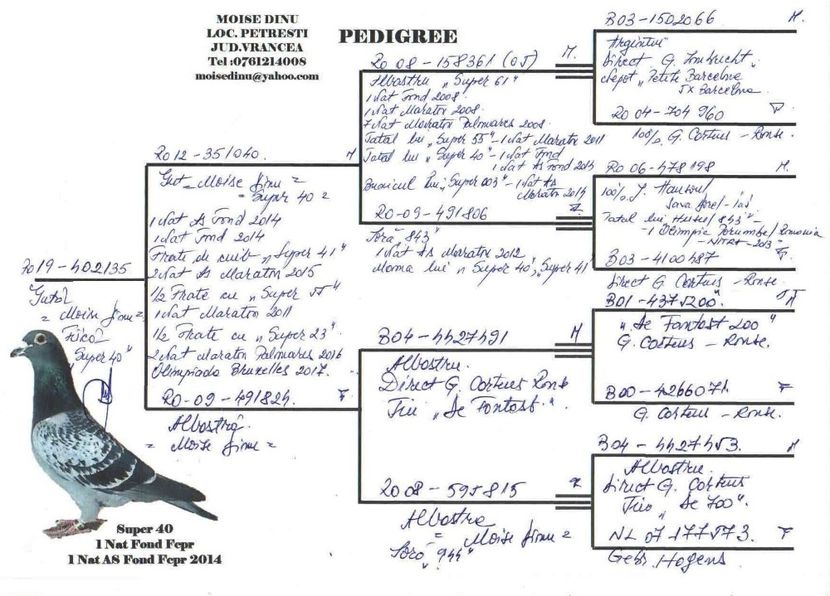 MOISE DINU
LOC. PETRESTI
JUD.VRANCEA
Tel :0761214008
moisedinu@yahoo.com
PEDIGREE
RO 19-402135
= Moise Dinu =
"Super 40"
RO 12-351040. M
= Moise Dinu =
= Super 40 =
1 Nat As Fond 2014
1 Nat Fond 2014
Frate de cuib "Super 41"
2 Nat As Maraton 2015
1/2 Frate cu "Super 55"
1 Nat Maraton 2011
1/2 Frate cu "Super 23".
2 Nat Maraton Palmares 2016
Olimpiada Bruxelles 2017.
RO-09-491824. F
Albastră
= Moise Dinu =
RO 08-158361 (OJ) M.
Albastru "Super 61"
1 Nat Fond 2008.
1 Nat Maraton 2008.
7 Nat Maraton Palmares 2008.
Tatal lui "Super 55" - 1 Nat Maraton 2011
Tatal lui "Super 40" - 1 Nat Fond
1 Nat As Fond 2013
Bunicul lui "Super 003" - 1 Nat As
Maraton 2014
RO-09-491806
Sora "843"
1 Nat As Maraton 2012
Mama lui "Super 40", "Super 41"
B04-4427491 M
Albastru.
Direct G. Corteus Ronse
Fiu "De Fantast".
RO 08-595815
Albastra
= Moise Dinu =
Soră "944"
B03-1502066 M.
Argintiu
Direct G. Imbrecht.
Nepot "Petite Barcelona
5x Barcelona
RO 04-704960
100% G. Corteus - Ronse.
RO 06-478198 M.
100% J.
Tatal lui
- 1 Olimpic Porumbel Romania
- NITRA-2013"
B03-4100487 F.
Direct G Corteus - Ronse.
B01-4375200 M
"De Fantast 200"
G. Corteus - Ronse.
B00-4266071. F
G. Corteus - Ronse.
B04-4427453. M
Albastru.
Direct G. Corteus
Fiu "De 700".
NL 07 177573. F
Gebr. Hagens
Super 40
1 Nat Fond Fcpr
1 Nat AS Fond Fcpr 2014